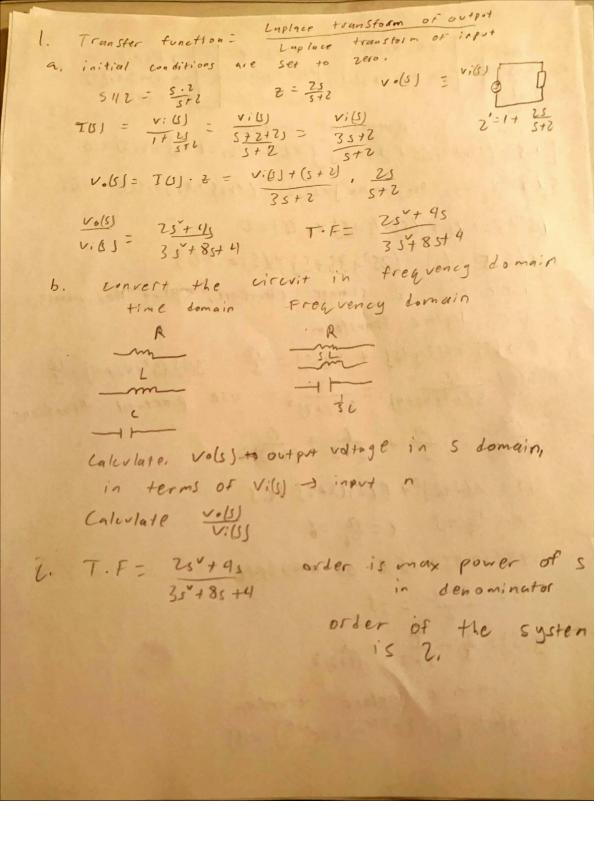 1. Transfer function = Laplace transform of output / Laplace transform of input
a. initial conditions are set to zero.
s||2 = s·2/s+2 z = 2s/s+2 Vo(s) = Vi(s)
I(s) = Vi(s)/1+2s/s+2 = Vi(s)/s+2+2s/s+2 = Vi(s)/3s+2/s+2 z' = 1 + 2s/s+2
Vo(s) = I(s)·z = Vi(s)+(s+2)/3s+2 · 2s/s+2
Vo(s)/Vi(s) = 2s²+4s/3s²+8s+4 T·F = 2s²+4s/3s²+8s+4
b. convert the circuit in frequency domain
time domain Frequency domain
R R
L SL
C
1/sc
Calculate. Vo(s) → output voltage in s domain,
in terms of Vi(s) → input n
Calculate Vo(s)/Vi(s)
i. T.F = 2s²+4s/3s²+8s+4 order is max power of s
in denominator
order of the system
is 2.